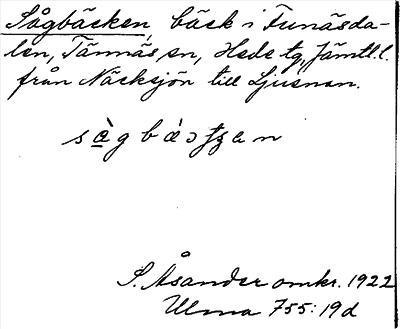 Sågbäcken, bäck i Funäsda-
len, Tännäs sn, Hede tg, Jämtl. l.
från Näcksjön till Ljusnan.
S. Åsander omkr. 1922
Ulma 755:19d